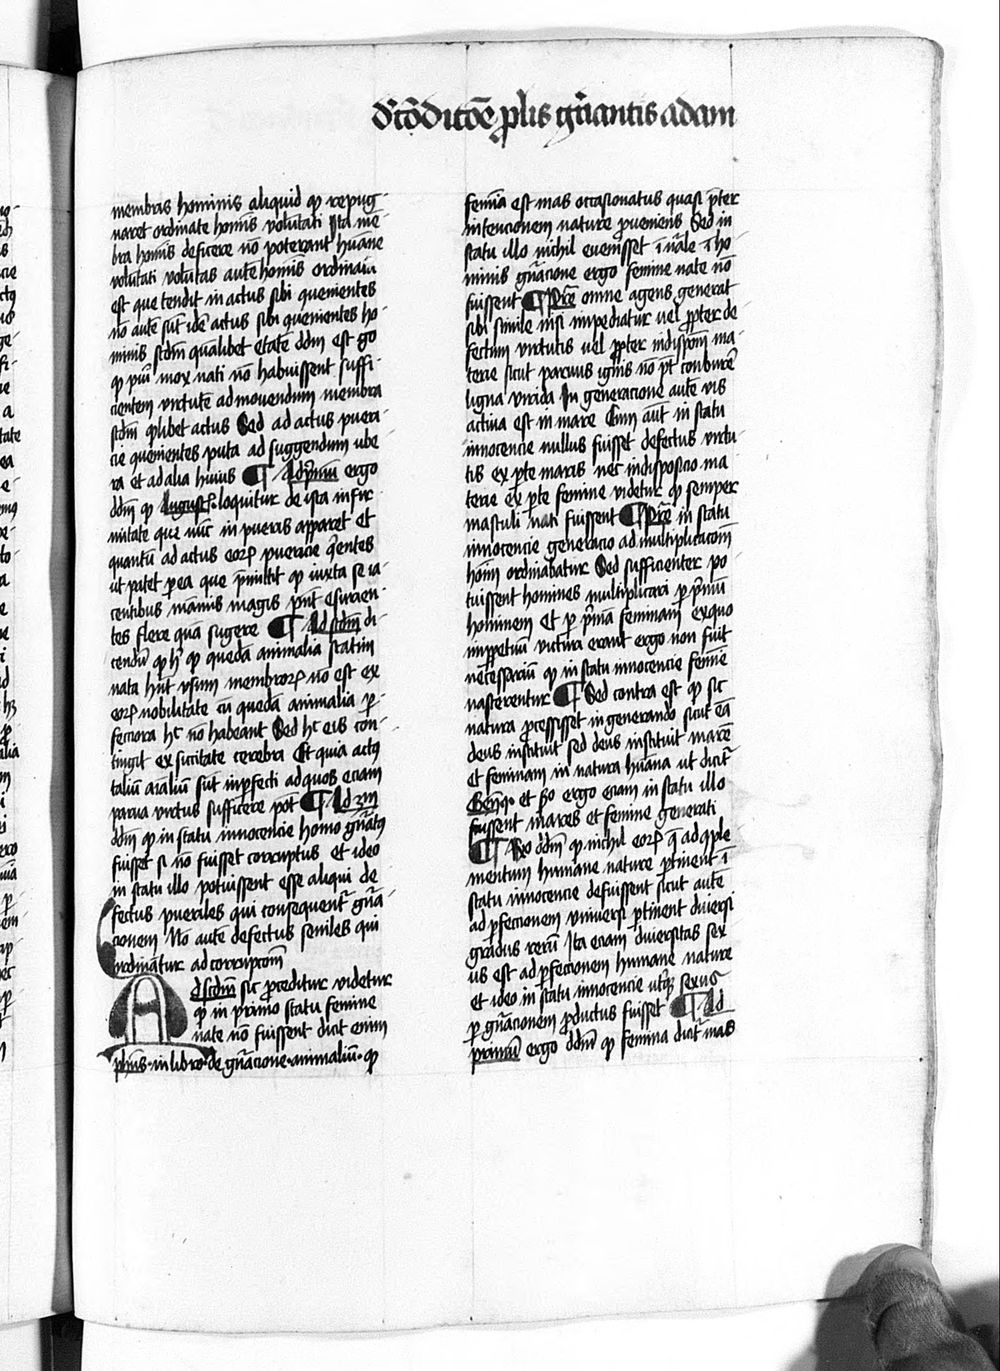 d' cōdicōe ꝓlis gn̄antis adam
membras hominis aliquid qꝫ repug-
naret ordinate hom̄is volūtati Ista mē-
bra hom̄is deficere nō poterant hūane
volūtati volūtas autē hominis ordinata
est que tendit in actus sibi ꝯuenientes
nō autē sūt idē actus sibi ꝯuenientes ho-
minis scd̄m qualibet etatē dd̄m est go
qꝫ pu̅i mox nati nō habuissent suffi-
cientem virtutē ad mouendum membra
scd̄m qūlibet actus Sed ad actus pueri-
cie ꝯuenientes puta ad suggendum ube-
ra et ad alia huius ¶ Ad pͥmū ergo
dd̄m qꝫ Augustꝰ loquitur de ista infir-
mitate que nūc in pueris apparet et
quantū ad actus eoꝝ puericie ꝯuēntes
ut patet ꝑ ea que p̄mittit qꝫ iuxta se ia-
centibus māmis magis pn̄t esurien-
tes flere quā sugere ¶ Ad scd̄m di-
cendū qꝫ hͦ qꝫ quedā animalia statim
nata hn̄t vsum membroꝝ nō est ex
eoꝝ nobilitate cū quedā animalia ꝑ-
fectiora hͦ nō habeant Sed hͦ eis con-
tingit ex siccitate cerebri Et quia actꝰ
taliū aīaliū sūt inꝑfecti ad quos eciam
parua virtus sufficere pōt ¶ Ad 3m
dd̄m qꝫ in statu innocencie homo gn̄atꝰ
fuisset si nō fuisset corruptus et ideo
in statu illo potuissent esse aliqui de-
fectus pueriles qui consequent᷑ gn̄a-
cionem Nō autē defectus seniles qui
ordinātur ad corrupcōm
Ad scd̄m sic ꝓceditur videtur
qꝫ in primo statu femine
nate nō fuissent dicit enim
ph̄us in libro de gn̄acione animaliū qꝫ
femīa est mas occasionatus quasi p̄ter
intencionem nature ꝓueniens Sed in
statu illo nichil euenisset īnāle ī ho-
minis gn̄acione ergo femine nate nō
fuissent ¶ Pret̄e omne agens generat
sibi simile nisi impediatur vel ꝓpter de-
fectum virtutis vel ꝓpter indispōm ma-
terie sicut paruus ignis nō pōt cōburere
ligna virida In generacione autē vis
actiua est in mare Cum aūt in statu
innocencie nullus fuisset defectus virtu-
tis ex ꝑte maris nec indisposicio ma-
terie ex ꝑte femine videtur qꝫ semper
masculi nati fuissent ¶ Pret̄e in statu
innocencie generacio ad multiplicacōm
hoīm ordinabatur Sed sufficienter po-
tuissent homines multiplicari ꝑ pͥmū
hominem et ꝑ pͥmā feminam ex quo
imꝑpetuū victuri erant ergo non fuit
necessariū qꝫ in statu innocencie femīe
nascerentur ¶ Sed contra est qꝫ sic
natura ꝓcessisset in generando sicut eā
deus instituit sed deus instituit marē
et feminam in natura hūana ut dicit᷑
Gen̄ 1ͦ et 2ͦ ergo eciam in statu illo
fuissent mares et femine generati
¶ Rͦ dd̄m qꝫ nichil eoꝝ q̄ ad ꝯple-
mentum humane nature ꝑtinent ī
statu innocencie defuissent sicut autē
ad ꝑfectionem vniuersi ꝑtinent diuersi
gradus rerū Ita eciam diuersitas sex-
us est ad ꝑfectionem humane nature
et ideo in statu innocencie ut̄qꝫ sexus
ꝑ gn̄acionem ꝓductus fuisset ¶ Ad
primum ergo dd̄m qꝫ femina dicit᷑ mas